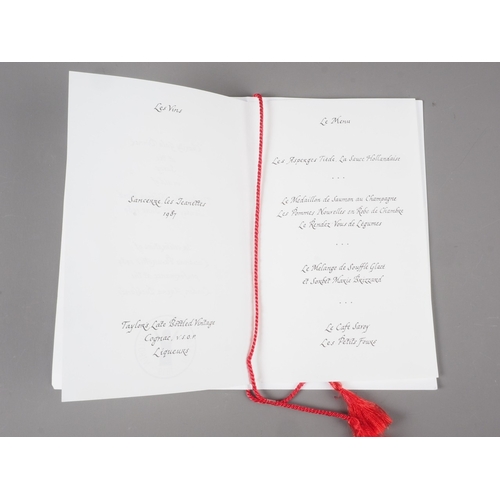 Les Vins
Sancerre les Jeanettes
1987
Taylors Late Bottled Vintage
Cognac, V.S.O.P.
Liqueurs
Le Menu
Les Asperges Tiede La Sauce Hollandaise
...
Le Medaillon de Saumon au Champagne
Les Pommes Nouvelles en Robe de Chambre
Le Rendez Vous de Legumes
...
Le Mélange de Soufflé Glacé
et Sorbet Marie Brizzard
...
Le Café
&
Les Petits Fours